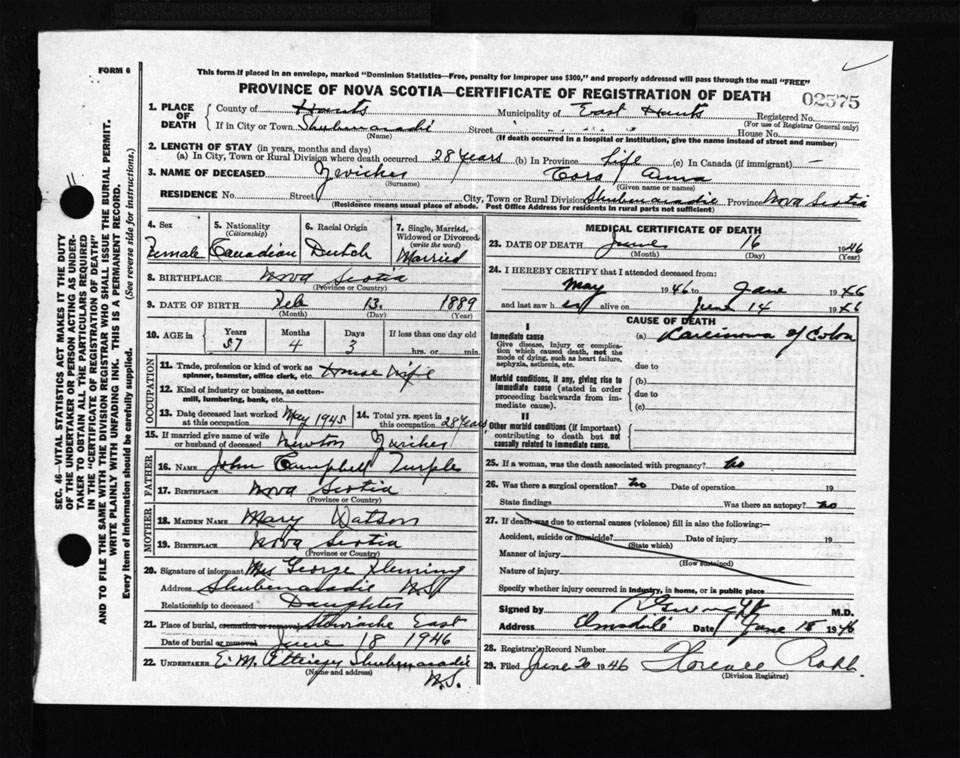 FORM 6
This form if placed in an envelope, marked "Dominion Statistics—Free, penalty for improper use $300," and properly addressed will pass through the mail "FREE"
PROVINCE OF NOVA SCOTIA—CERTIFICATE OF REGISTRATION OF DEATH
02575
SEC. 46—VITAL STATISTICS ACT MAKES IT THE DUTY
OF THE UNDERTAKER OR PERSON ACTING AS UNDER-
TAKER TO OBTAIN ALL THE PARTICULARS REQUIRED
IN THE "CERTIFICATE OF REGISTRATION OF DEATH"
AND TO FILE THE SAME WITH THE DIVISION REGISTRAR WHO SHALL ISSUE THE BURIAL PERMIT.
WRITE PLAINLY WITH UNFADING INK. THIS IS A PERMANENT RECORD.
Every item of information should be carefully supplied. (See reverse side for instructions.)
1. PLACE OF DEATH
County of Hants Municipality of East Hants Registered No.
(For use of Registrar General only)
If in City or Town Shubenacadie Street House No.
(Name) (If death occurred in a hospital or institution, give the name instead of street and number)
2. LENGTH OF STAY (in years, months and days)
(a) In City, Town or Rural Division where death occurred 28 years (b) In Province Life (c) In Canada (if immigrant) —
3. NAME OF DECEASED Zwicker Cora Anna
(Surname) (Given name or names)
RESIDENCE No. Street City, Town or Rural Division Shubenacadie Province Nova Scotia
(Residence means usual place of abode. Post Office Address for residents in rural parts not sufficient)
4. Sex Female
5. Nationality (Citizenship) Canadian
6. Racial Origin Dutch
7. Single, Married, Widowed or Divorced (write the word) Married
8. BIRTHPLACE Nova Scotia
(Province or Country)
9. DATE OF BIRTH Feb 13, 1889
(Month) (Day) (Year)
10. AGE in Years Months Days If less than one day old
57 4 3 hrs. or min.
OCCUPATION
11. Trade, profession or kind of work as spinner, teamster, office clerk, etc. House Wife
12. Kind of industry or business, as cotton-mill, lumbering, bank, etc.
13. Date deceased last worked at this occupation May 1945
14. Total yrs. spent in this occupation 28 years
15. If married give name of wife or husband of deceased Newton Zwicker
FATHER
16. NAME John Campbell Turple
17. BIRTHPLACE Nova Scotia
(Province or Country)
MOTHER
18. MAIDEN NAME Mary Watson
19. BIRTHPLACE Nova Scotia
(Province or Country)
20. Signature of informant Mrs George Fleming
Address Shubenacadie N.S.
Relationship to deceased Daughter
21. Place of burial, cremation or removal Stewiacke East
Date of burial or removal June 18 1946
22. UNDERTAKER E. M. Shubenacadie
(Name and address) N.S.
MEDICAL CERTIFICATE OF DEATH
23. DATE OF DEATH June 16 1946
(Month) (Day) (Year)
24. I HEREBY CERTIFY that I attended deceased from:
May 1946 to June 1946
and last saw her alive on June 14 1946
CAUSE OF DEATH
I
Immediate cause
Give disease, injury or complication which caused death, not the mode of dying, such as heart failure, asphyxia, asthenia, etc.
(a) Carcinoma of Colon
due to
Morbid conditions, if any, giving rise to immediate cause (stated in order proceeding backwards from immediate cause).
(b)
due to
(c)
II
Other morbid conditions (if important) contributing to death but not causally related to immediate cause.
25. If a woman, was the death associated with pregnancy? No
26. Was there a surgical operation? No Date of operation 19
State findings Was there an autopsy? No
27. If death was due to external causes (violence) fill in also the following:—
Accident, suicide or homicide? Date of injury 19
(State which)
Manner of injury
(How sustained)
Nature of injury
Specify whether injury occurred in industry, in home, or in public place
Signed by M.D.
Address Elmsdale Date June 18 1946
28. Registrar's Record Number
29. Filed June 20 1946 Florence Robb
(Division Registrar)